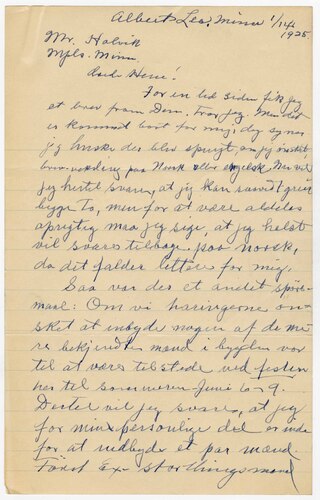 Albert Lea, Minn 1/14
1925
Mr. Holvik
Mpls. Minn
For en tid siden fik jeg
et brev from Dem, tror jeg. Men det
er kommet bort for mig, dog synes
jeg huske der blev spurgt om jeg
paa Norsk eller engelsk. Her vil
jeg hertil svare, at jeg kan
bygge to, men for at være aldeles
oprigtig maa jeg sige, at jeg helst
vil svares tilbage paa norsk,
da det falder lettere for mig.
Saa var der et andet spörs-
maal: Om vi haringerne ön-
sket at inbyde nogen af de me-
re bekjendte mænd i bygden vor
til at være tilstede ved festen
her til sommeren Juni 6-9.
Dertil vil jeg svare, at jeg
for min personlige del er inde
for at indbyde et par mænd.
Först Ex-storthingsmand